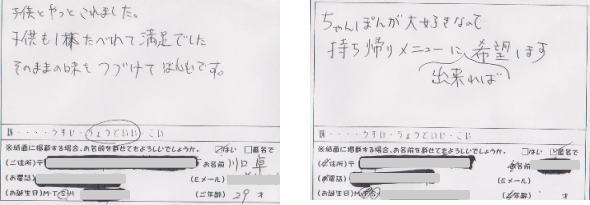 子供とやっとこれました。
子供も1杯たべれて満足でした
そのままの味をつづけてほしいです。
味・・・・うすい・ちょうどいい・こい
※紙面に掲載する場合、お名前を載せてもよろしいでしょうか。 □はい □匿名で
(ご住所)〒
お名前 川口 卓
(お電話)
(Eメール)
(お誕生日)M・T・S・H
(ご年齢) 29 才
ちゃんぽんが大好きなので
持ち帰りメニューに希望します
出来れば
味・・・・うすい・ちょうどいい・こい
※紙面に掲載する場合、お名前を載せてもよろしいでしょうか。 □はい □匿名で
(ご住所)〒
お名前
(お電話)
(Eメール)
(お誕生日)M・T・S・H
(ご年齢) 才